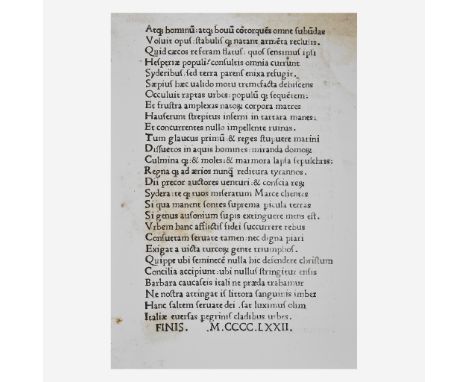 Atq; hominū: atq; bouū cōtorquēs omne subūdas
Voluit opus: stabulis q; natant armēta reclusis.
Quid cæcos referam flatus: quos sensimus ipsi
Hesperiæ populi? consultis omnia currunt
Syderibus: sed terra parens enixa refugit.
Sæpius hæc ualido motu tremefacta dehiscens
Occuluit raptas urbes: populū q; sequētem:
Et frustra amplexas natos q; corpora matres
Hauserunt strepitus inferni in tartara manes:
Et concurrentes nullo impellente ruinas.
Tum glaucus primū & reges stupuere marini
Dissuetos in aquis homines: miranda domos q;
Culmina q; & moles: & marmora lapsa sepulchris:
Regna q; ad aerios nunq̄ reditura tyrannos.
Dii precor auctores uenturi: & conscia req;
Sydera: te q; tuos miseratum Marce clientes
Si qua manent sontes suprema picula terras
Si genus ausonium supis extinguere mens est.
Vrbem hanc afflictis fidei succurrere rebus
Consuetam seruate tamen: nec digna piari
Exigat a uicta turcorum gente triumphos.
Quippe ubi seminecē nulla hic defendere christum
Concilia accipiunt: ubi nullus stringitur ensis
Barbara caucaseis itali ne præda trahamur
Ne nostra attingat is littora sanguinis imber
Hanc saltem seruate dei. sat luximus olim
Italiæ euersas pegrinis cladibus urbes.
FINIS. .M.CCCC.LXXII.